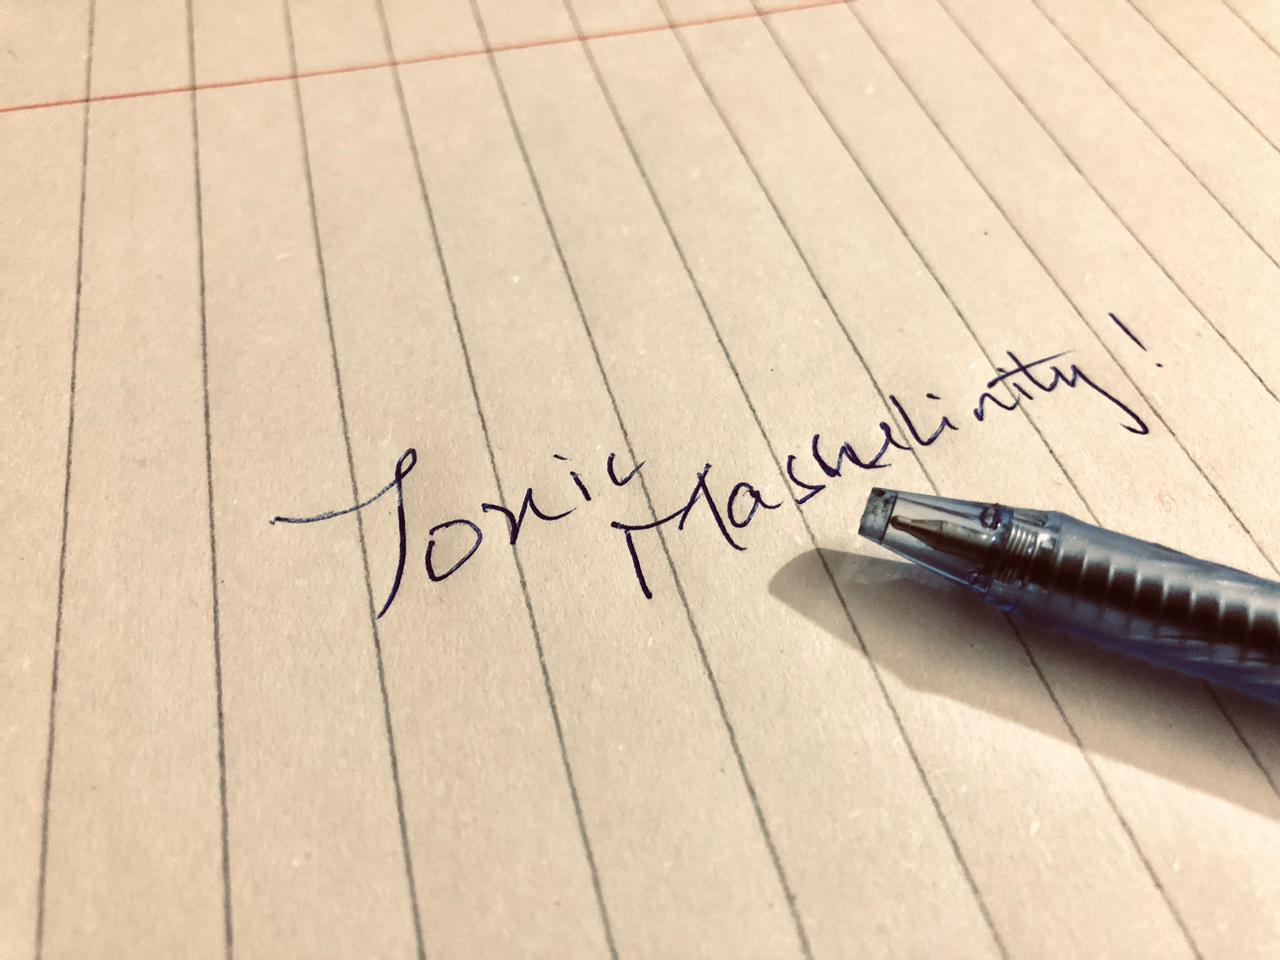 Toxic Maskulinity!